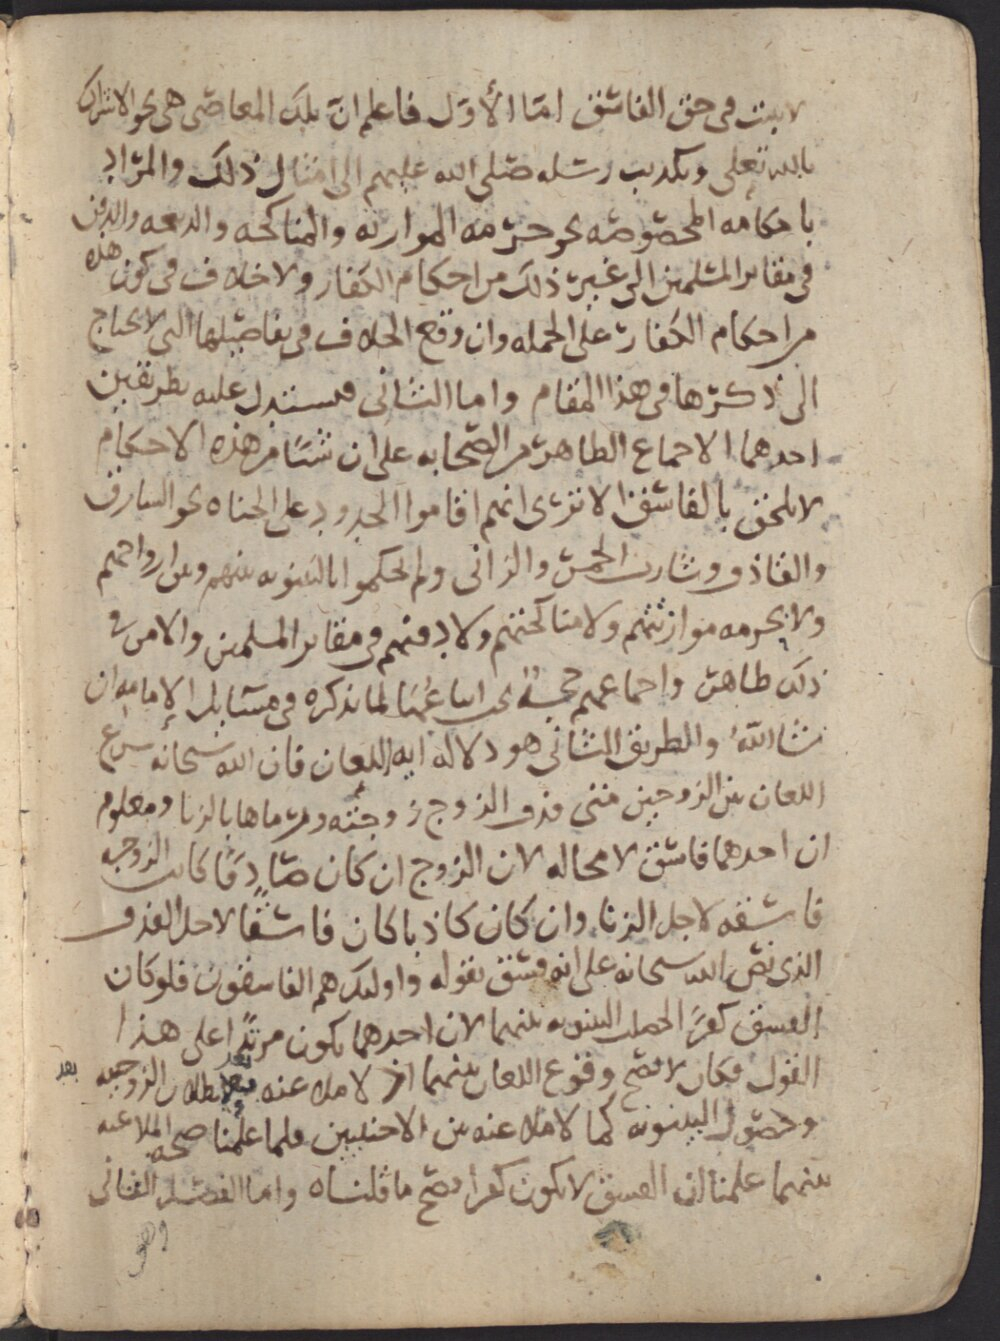 لا يثبت في حق الفاسق اما الأول فاعلم ان تلك المعاصي هي نحو الاشراك
بالله تعلى وتكذيب رسله صلى الله عليهم الى امثال ذلك والمراد
باحكامه المخصوصه نحو حرمه الموارثه والمناكحه والذبيحه والدفن
في مقابر المسلمين الى غير ذلك من احكام الكفار ولا خلاف في كون هذه
من احكام الكفار على الجمله وان وقع الخلاف في تفاصيلها التي لا يحتاج
الى ذكرها في هذا المقام واما الثاني فيستدل عليه بطريقين
احدهما الاجماع الظاهر من الصحابه على ان شيئا من هذه الاحكام
لا يلحق بالفاسق الا ترى انهم اقاموا الحدود على الجناه نحو السارق
والقاذف وشارب الخمر والزاني ولم يحكموا بالبينونه بينهم وبين ازواجهم
ولا بحرمه موارثتهم ولا مناكحتهم ولا دفنهم في مقابر المسلمين والامر في
ذلك ظاهر واجماعهم حجة يجب اتباعها لما نذكره في مسايل الإمامه ان
شا اللهُ والطريق الثاني هو دلاله ايه اللعان فان الله سبحانه شرع
اللعان بين الزوجين متى قذف الزوج زوجته ورماها بالزنا ومعلوم
ان احدهما فاسق لا محاله لان الزوج ان كان صادقا كانت الزوجه
فاسقه لاجل الزنا وان كان كاذبا كان فاسقا لاجل القذف
الذي نص الله سبحانه على انه فسق بقوله واولئك هم الفاسقون فلو كان
الفسق كفرا لحصلت البينونه بينهما لان احدهما يكون مرتدا على هذا
القول فكان لا يصح وقوع اللعان بينهما اذ لا ملاعنه بعد بطلان الزوجيه
بعد
وحصول البينونه كما لا ملاعنه بين الاجنبيين فلما علمنا صحه الملاعنه
بينهما علمنا ان الفسق لا يكون كفرا فصح ما قلناه واما الفصل الثاني
وهو